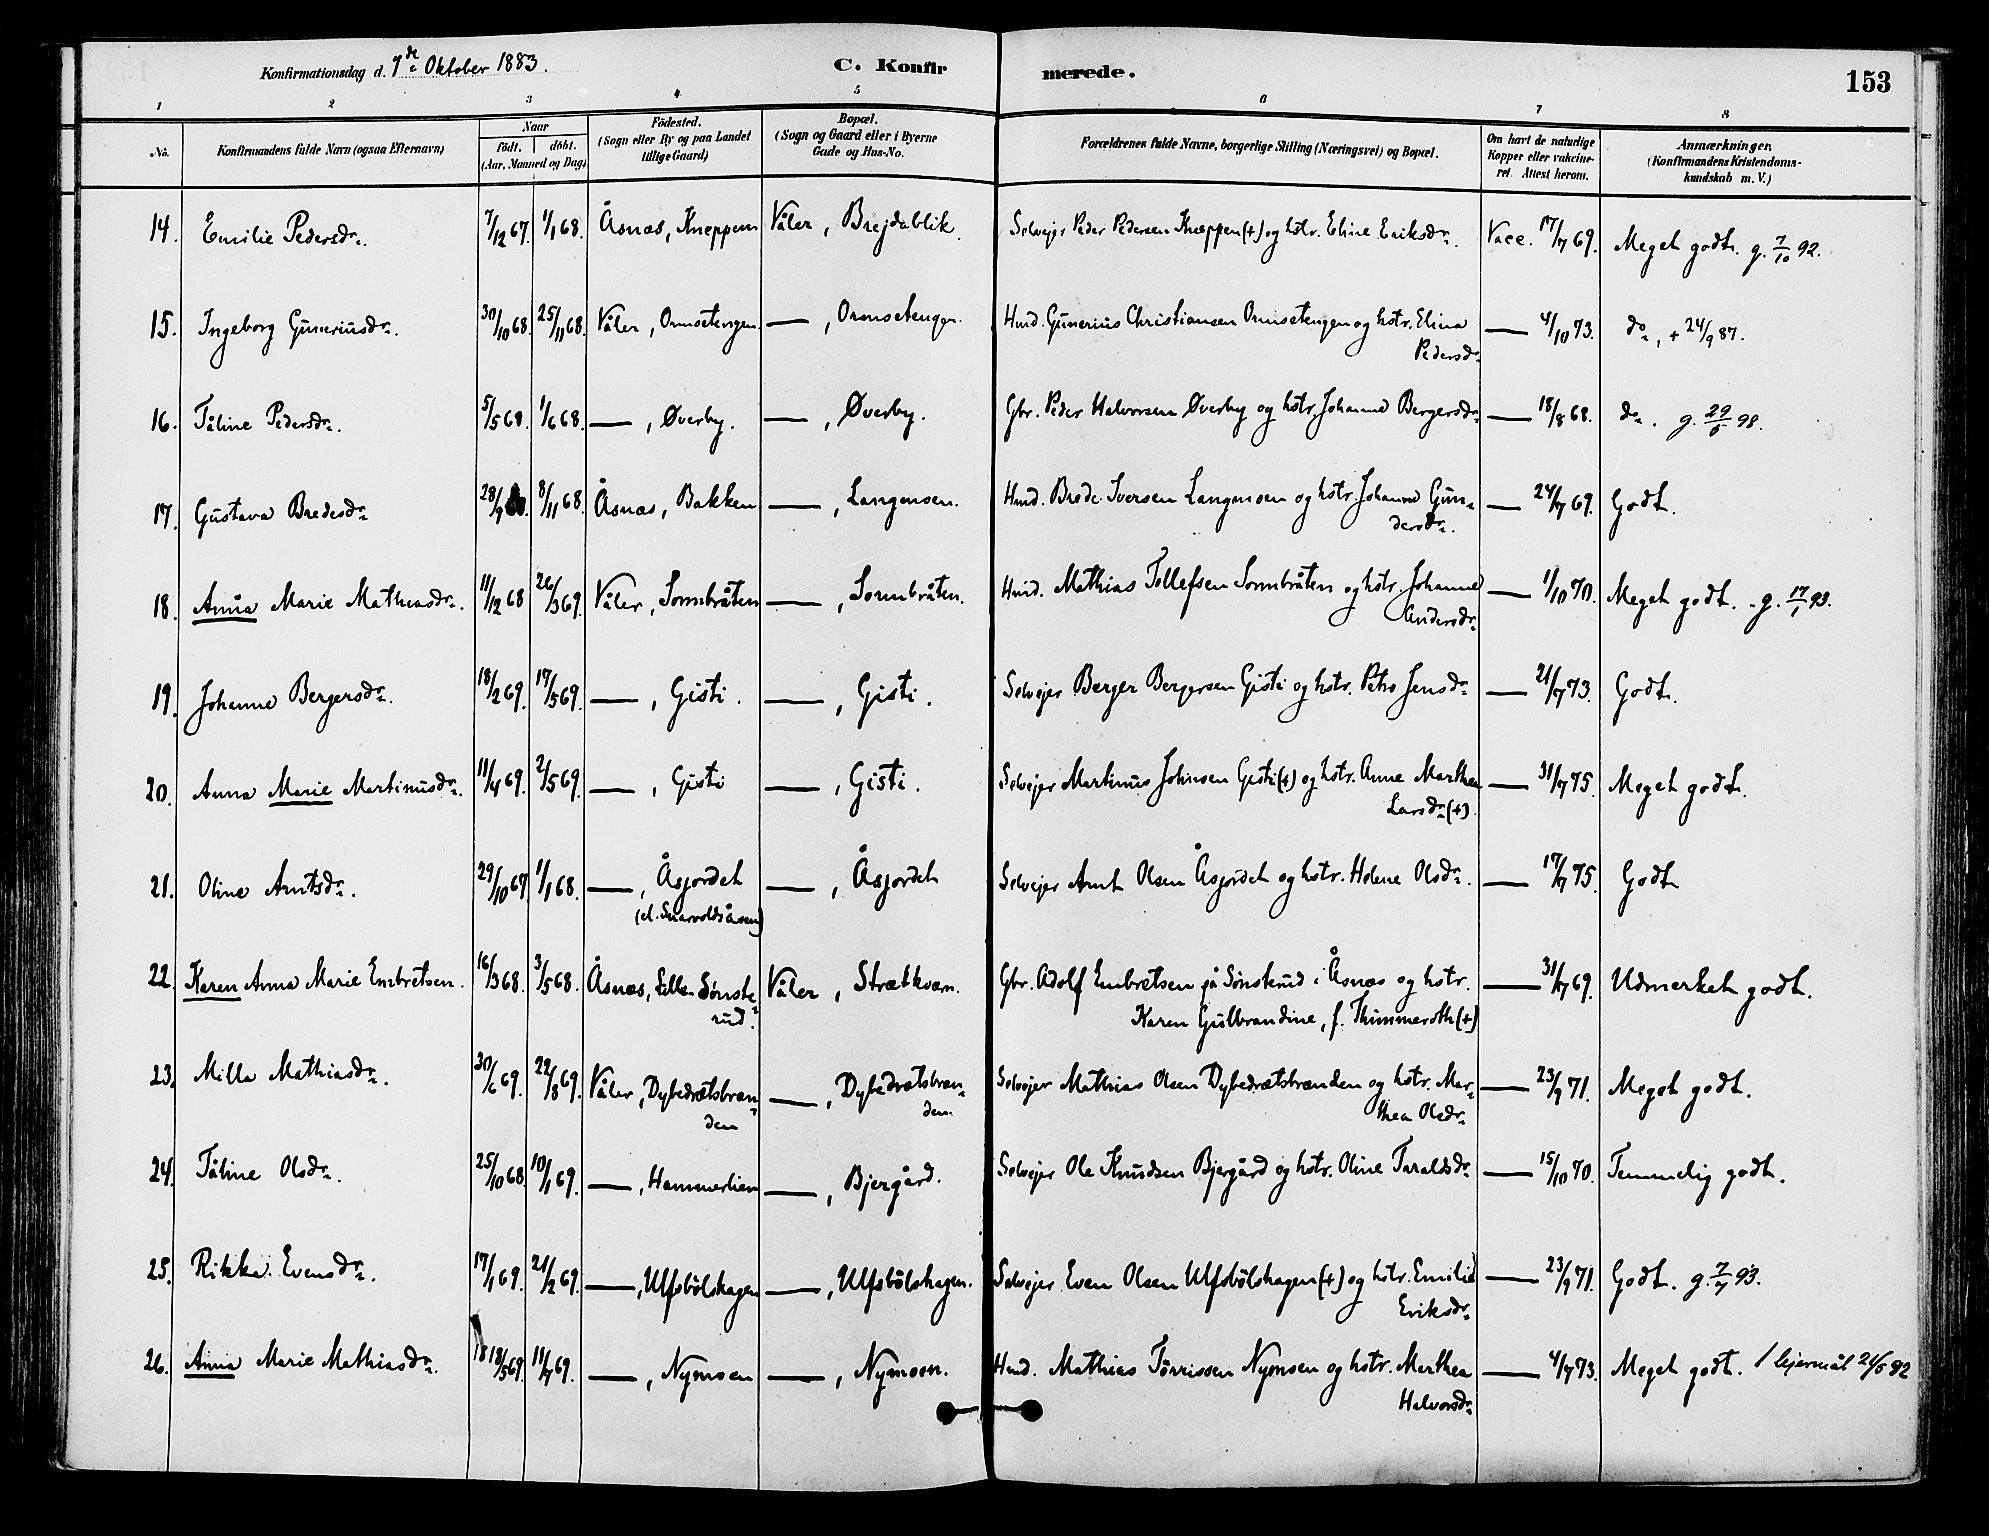 Konfirmationsdag d. 7de Oktober 1883.
C. Konfirmerede.
153
1 2 3 4 5 6 7 8
No. Konfirmandens fulde Navn (ogsaa Efternavn) Naar født. døbt. (Aar, Maaned og Dag) Födested. (Sogn eller By og paa Landet tillige Gaard) Bopæl. (Sogn og Gaard eller i Byerne Gade og Hus-No. Forældrenes fulde Navne, borgerlige Stilling (Næringsvei) og Bopæl. Om havt de naturlige Kopper eller vakcineret. Attest herom. Anmærkninger. (Konfirmandens Kristendomskundskab m. V.)
14. Emilie Pedersdr. 7/12 67. 1/1 68. Åsnæs, Kneppen Våler, Brejdablik. Selvejer Peder Pedersen Kneppen (+) og hstr. Eline Eriksdr. Vacc. 17/7 69. Meget godt. g. 7/10 92.
15. Ingeborg Guneriusdr. 30/10 68. 25/11 68. Våler, Ormsetengen. — , Ormsetengen. Hmd. Gunerius Christiansen Ormsetengen og hstr. Elina — 4/10 73. do, + 24/9 87.
Pedersdr.
16. Tåline Pedersdr. 5/5 68. 1/6 68. — , Øverby. — , Øverby. Gbr. Peder Halvorsen Øverby og hstr. Johanne Bergersdr. — 18/8 68. do. g. 29/5 98.
17. Gustava Bredesdr. 28/9 8/11 68. Åsnæs, Bakken — , Langmoen. Hmd. Brede Iversen Langmoen og hstr. Johanne Gun- — 24/7 69. Godt.
dersdr.
18. Anna Marie Mathiasdr. 11/12 68 26/3 69. Våler, Sormbråten — , Sormbråten. Hmd. Mathias Tollefsen Sormbråten og hstr. Johanne — 1/10 70. Meget godt. - g. 17/1 93.
Andersdr.
19. Johanne Bergersdr. 18/2 69. 17/5 69. — , Gisti. — , Gisti. Selvejer Berger Bergersen Gisti og hstr. Petro Jensdr. — 21/7 73. Godt.
20. Anna Marie Martinusdr. 11/4 69. 2/5 69. — , Gisti — , Gisti. Selvejer Martinus Johnsen Gisti (+) og hstr. Anne Marthea — 31/7 75. Meget godt.
Larsdr. (+).
21. Oline Arntsdr. 29/10 67 1/1 68. — , Åsjordet — , Åsjordet Selvejer Arnt Olsen Åsjordet og hstr. Helene Olsdr. — 17/7 75. Godt
(el. Snarvoldsåsen)
22. Karen Anna Marie Embretsen. 16/3 68. 3/5 68. Åsnæs, Lille Sønste- Våler, Strætkværn. Gbr. Adolf Embretsen på Sønsterud i Åsnæs og hstr. — 31/7 69. Udmerket godt.
rud. Karen Gulbrandine, f. Thimmeroth (+)
23. Milla Mathiasdr. 30/6 69. 22/8 69. Våler, Dybedrætsbræn- — , Dybedrætsbræn- Selvejer Mathias Olsen Dybedrætsbrænden og hstr. Mar- — 23/9 71. Meget godt.
den den. thea Olsdr.
24. Tåline Olsdr. 25/10 68. 10/1 69. — , Hammerlien — , Bjergård. Selvejer Ole Knudsen Bjergård og hstr. Oline Taraldsdr. — 15/10 70. Temmelig godt.
25. Rikka Evensdr. 17/1 69. 21/2 69. — , Ulfsbölshagen — , Ulfsbölshagen. Selvejer Even Olsen Ulfsbölshagen (+) og hstr. Emilie — 23/9 71. Godt. g. 7/7 93.
Eriksdr.
26. Anna Marie Mathiasdr. 18/5 69. 11/7 69. — , Nymoen — , Nymoen. Hmd. Mathias Törrissen Nymoen og hstr. Marthea — 4/7 73. Meget godt. 1 lejermål 21/5 92
Halvorsdr.